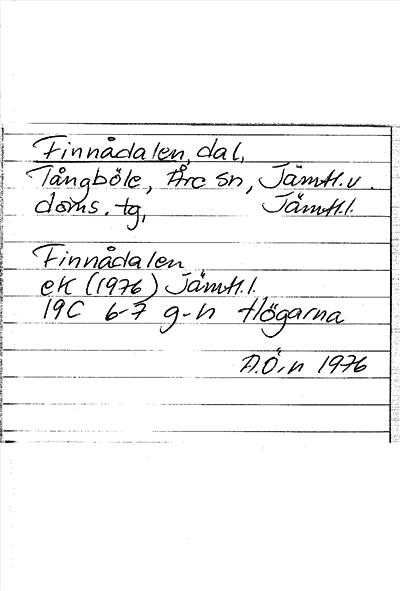 Finnådalen, dal,
Tångböle, Åre sn, Jämtl. v.
doms. tg, Jämtl. l.
Finnådalen
ek (1976) Jämtl. l.
19C 6-7 g-h Högarna
A.Ö:n 1976